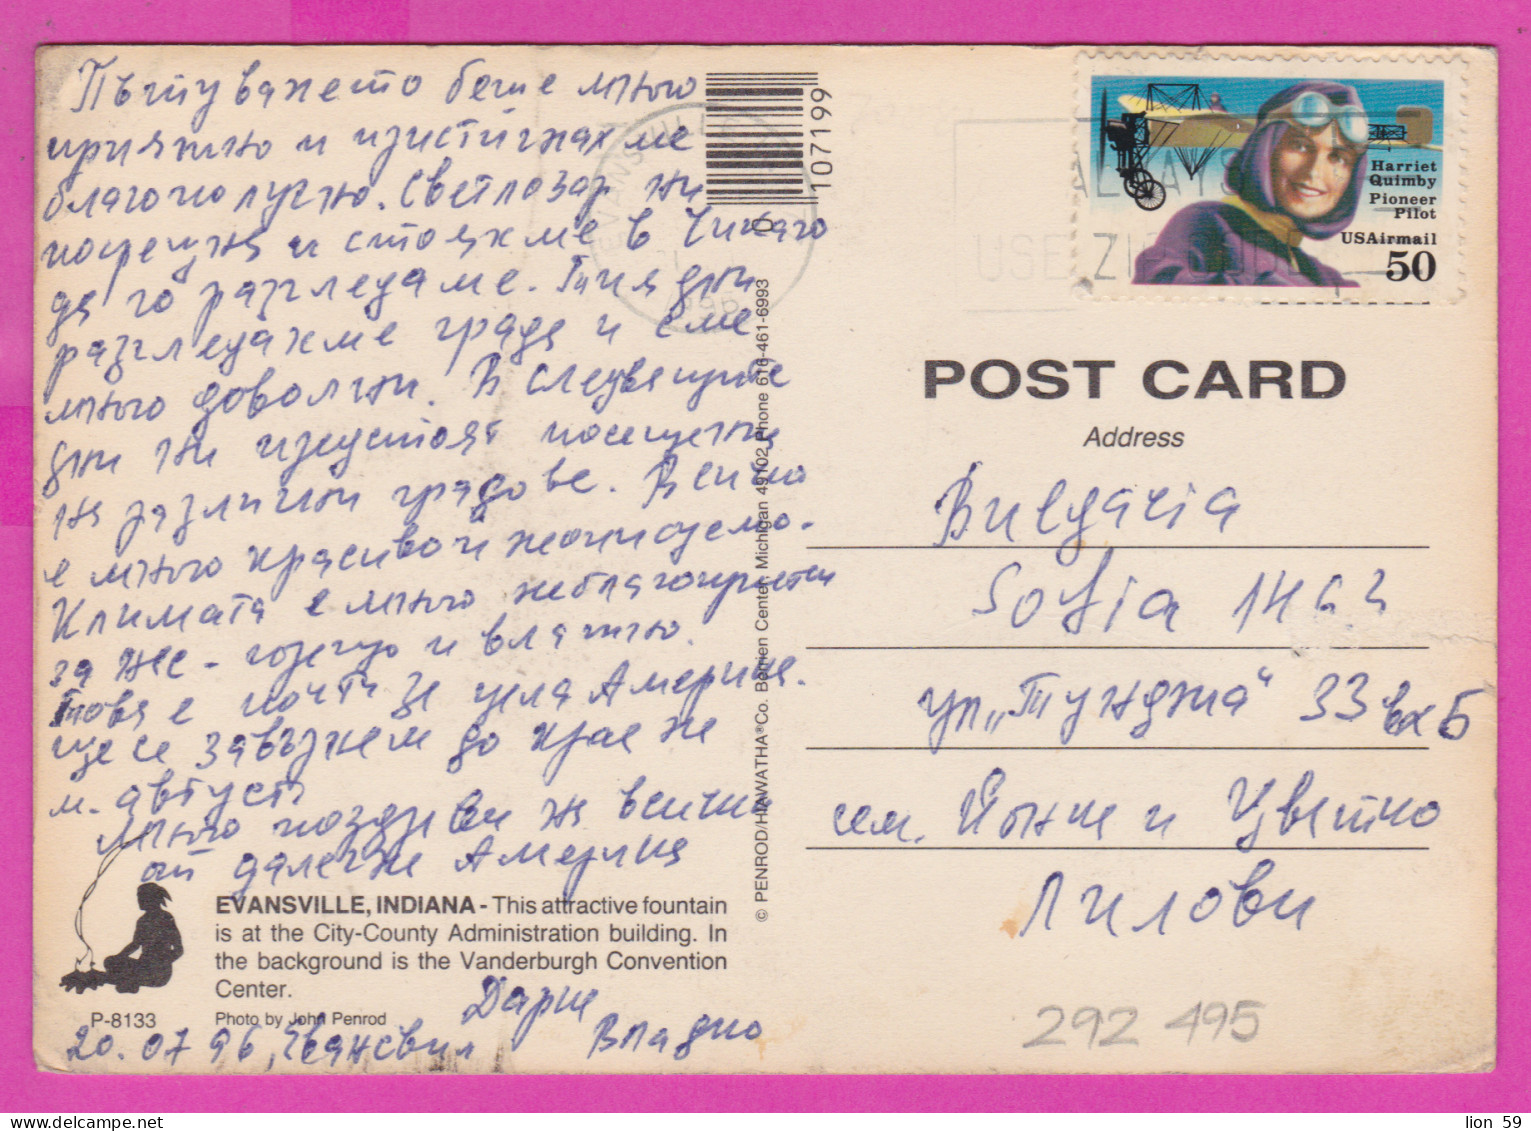 Пътуването беше много
приятно и пристигнахме
благополучно. Светлозар ни
посрещна и стояхме в Чикаго
да го разгледаме. Тия дни
разглеждахме града и сме
много доволни. В следващите
дни ни предстоят посещения
на различни градове. Всичко
е много красиво и неописуемо.
Климата е много неблагоприятен
за нас - горещо и влажно.
Това е почти за цяла Америка.
Ще се завърнем до края на
м. август.
Много поздрави на всички
от далечна Америка
EVANSVILLE, INDIANA - This attractive fountain
is at the City-County Administration building. In
the background is the Vanderburgh Convention
Center.
P-8133
Photo by John Penrod
Дарина
20.07.96, Евансвил
Владко
107199
0
© PENROD/HIAWATHA®Co. Berrien Center, Michigan 49102 Phone 616-461-6993
EVANSVILLE
1996
ALWAYS
USE ZIP CODE
Harriet
Quimby
Pioneer
Pilot
USAirmail
50
POST CARD
Address
Bulgaria
Sofia 1463
ул. „Тунджа" 33 вх Б
сем. Янка и Цветко
Лилови
292 495
lion 59